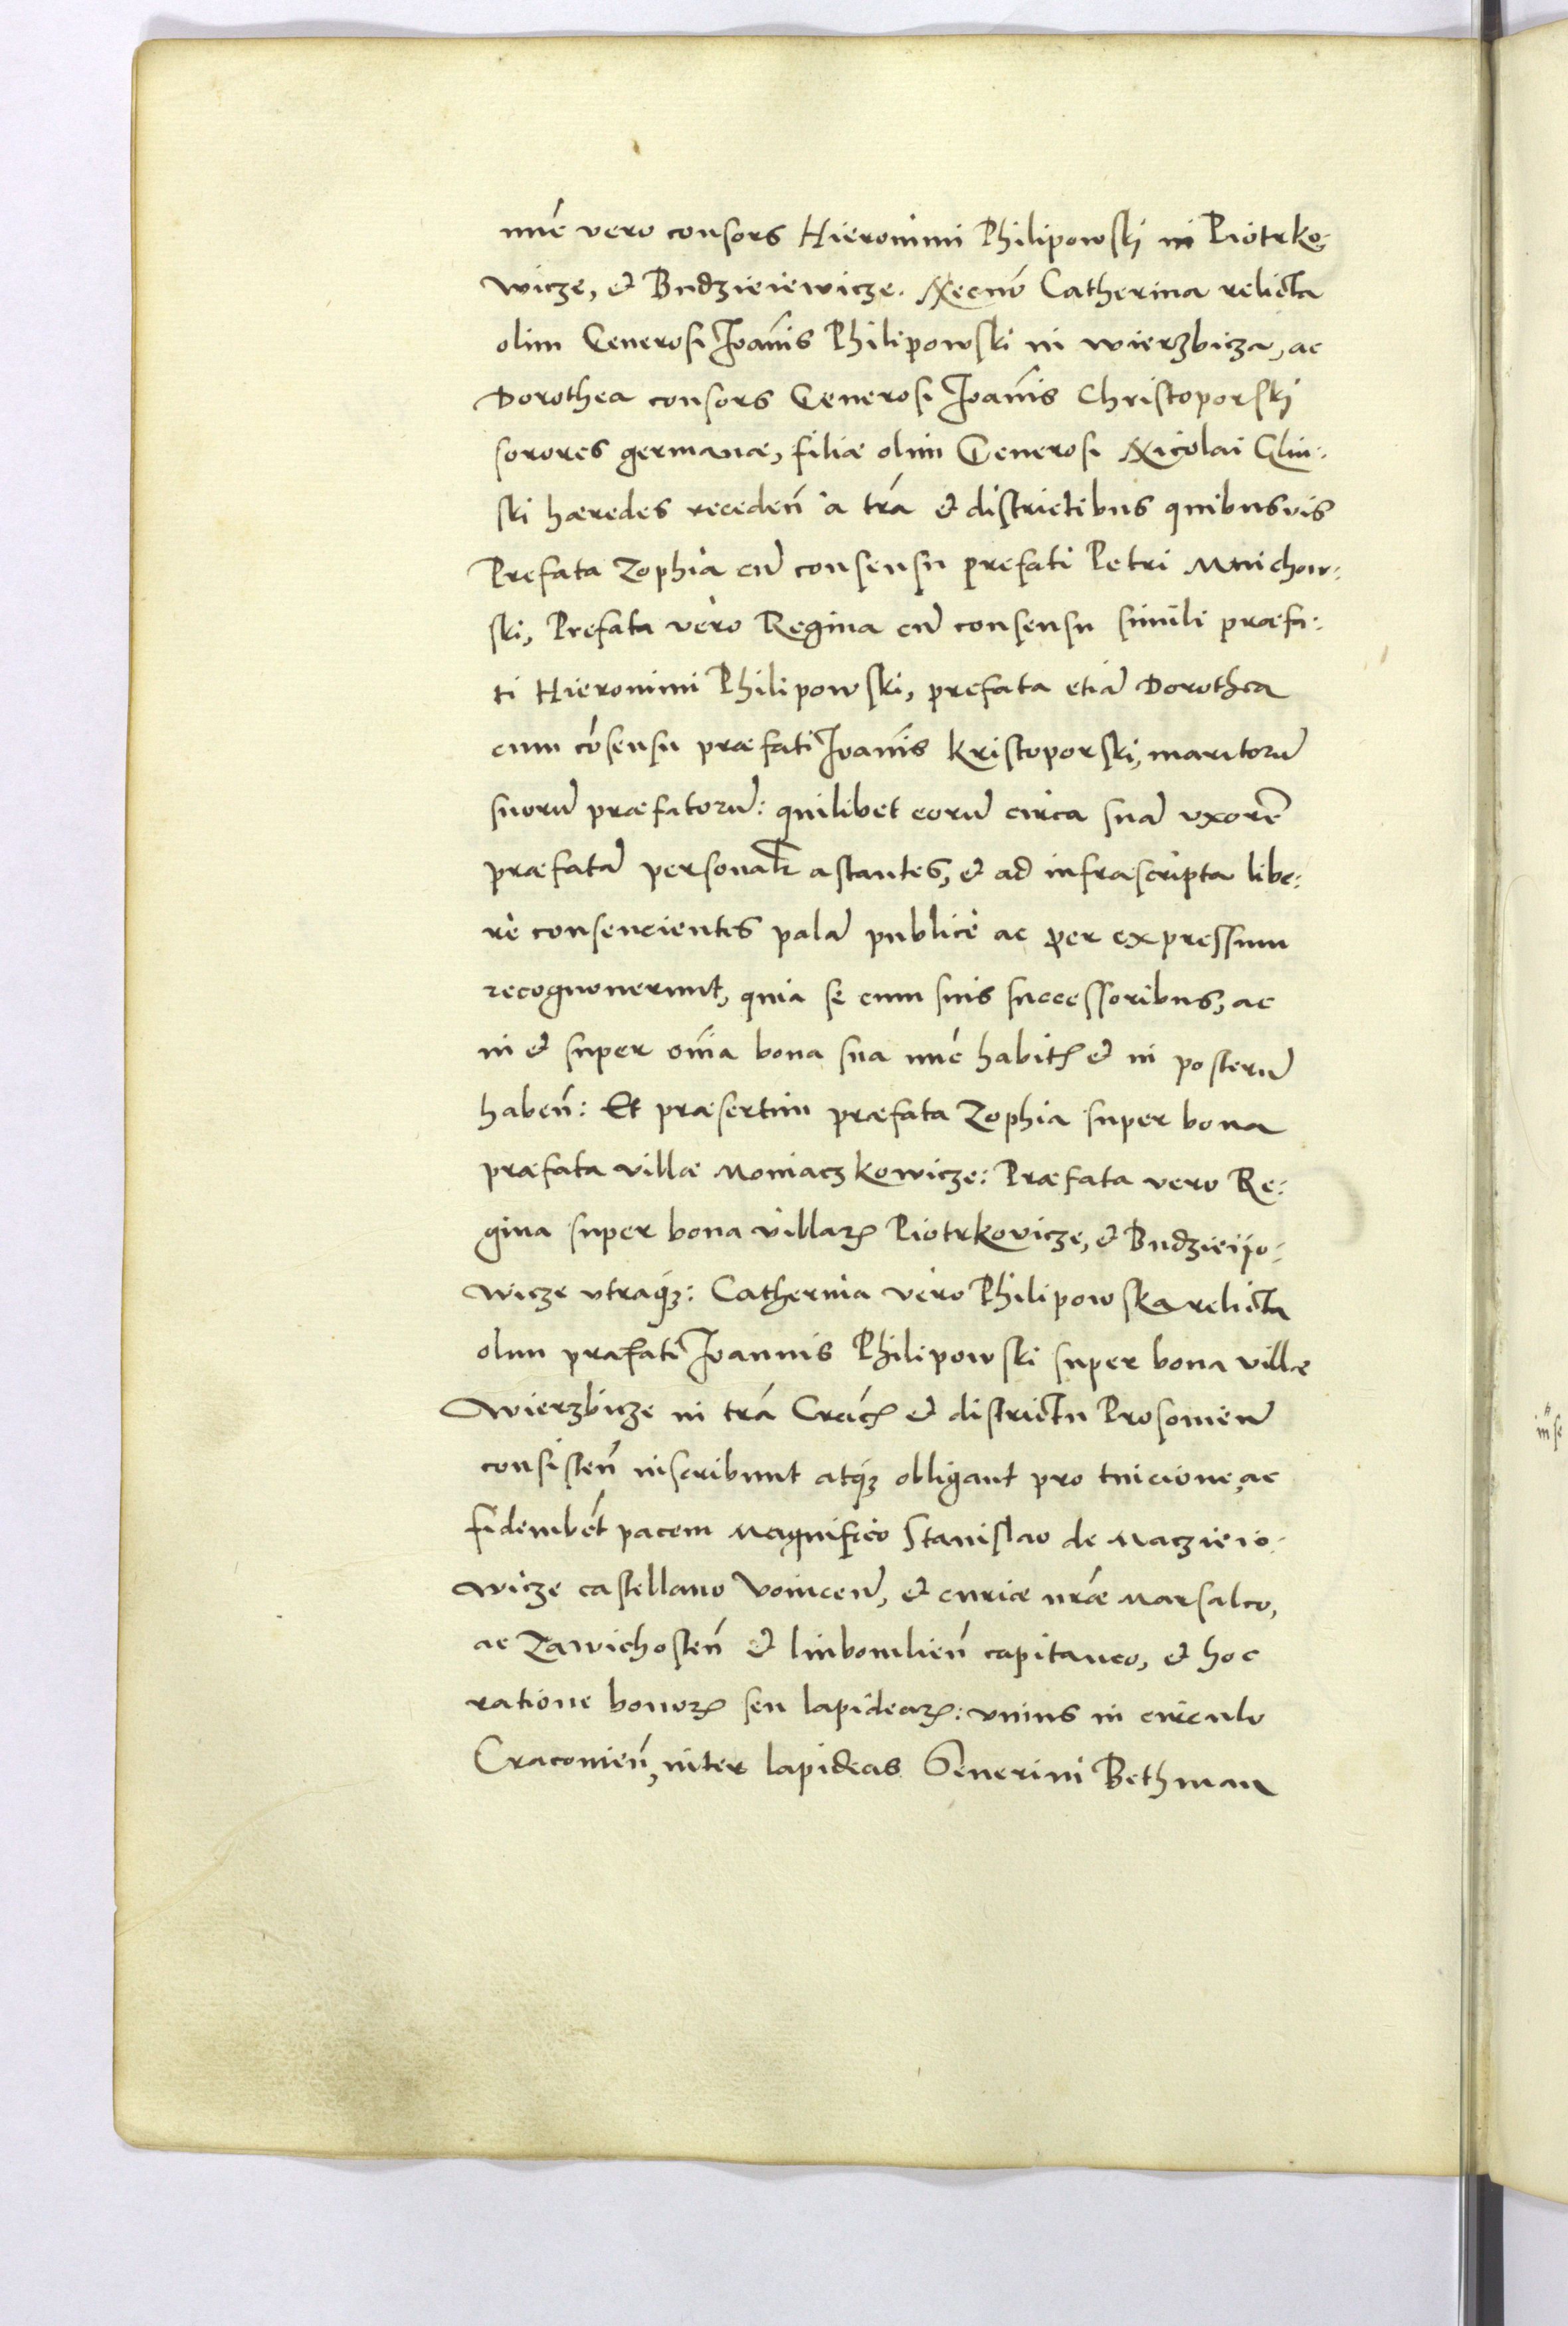 nūc vero consors Hieronimi Philipowski in Piotrko:
wicze, et Budzieiewicze. Necnō Catherina relicta
olim Generosi Ioān̄is Philipowski in wierzbicza, ac
Dorothea consors Generosi Ioān̄is Christoporski
sorores germanæ, filiæ olim Generosi Nicolai Glin:
ski hæredes receden̄ à tr̄a et districtibus quibusvis
Prefata Zophia cū consensu prefati Petri Mnichow:
ski, Prefata vero Regina cū consensu simili præfa:
ti Hieronimi Philipowski, prefata etiā Dorothea
cum cōsensu præfati Ioān̄is Kristoporski, maritorū
suorū præfatorū: quilibet eorū circa suā vxorē
præfatā personalr̄ astantes, et ad infrascripta libe:
rè consencientes palā publicè ac per expressum
recognouerunt, quia se cum suis successoribus, ac
in et super om̄ia bona sua nūc habitꝭ et in posterū
haben̄: Et præsertim præfata Zophia super bona
præfata villæ Moniaczkowicze: Præfata vero Re:
gina super bona villarꝝ Piotrkovicze, et Budzieijo:
wicze vtraqꝫ: Catherina vero Philipowska relicta
olim præfati Ioannis Philipowski super bona villæ
Wierzbicze in tr̄a Cracꝭ et districtu Prosomien̄
consisten̄ inscribunt atqꝫ obligant pro tuicione, ac
fideiubēt pacem Magnifico Stanislao de Maczieio:
wicze castellano Voinicen̄, et curiæ nr̄æ Marsalco,
ac Zawichosten̄ et liubomlien̄ capitaneo, et hoc
ratione bonorꝝ seu lapidearꝝ: vnius in circulo
Cracouien̄, inter lapideas Seuerini Bethman